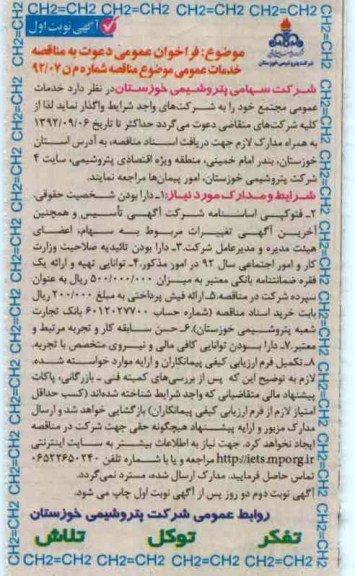 CH2=CH2 CH2=CH2 CH2=CH2 CH2=CH2 CH2=CH2
آگهی نوبت اول
شرکت پتروشیمی خوزستان
موضوع: فراخوان عمومی دعوت به مناقصه
خدمات عمومی موضوع مناقصه شماره م ن ۹۲/۰۷
شرکت سهامی پتروشیمی خوزستان در نظر دارد خدمات
عمومی مجتمع خود را به شرکت‌های واجد شرایط واگذار نماید لذا از
کلیه شرکت‌های متقاضی دعوت می‌گردد حداکثر تا تاریخ ۱۳۹۲/۰۹/۰۶
به همراه مدارک لازم جهت دریافت اسناد مناقصه، به آدرس استان
خوزستان، بندر امام خمینی، منطقه ویژه اقتصادی پتروشیمی، سایت ۴
شرکت پتروشیمی خوزستان، امور پیمان‌ها مراجعه نمایند.
شرایط و مدارک مورد نیاز: ۱ـ دارا بودن شخصیت حقوقی.
۲ـ فتوکپی اساسنامه شرکت آگهی تأسیس و همچنین
آخرین آگهی تغییرات مربوط به سهام، اعضای
هیئت مدیره و مدیرعامل شرکت. ۳ـ دارا بودن تائیدیه صلاحیت وزارت
کار و امور اجتماعی سال ۹۲ در امور مذکور. ۴ـ توانایی تهیه و ارائه یک
فقره ضمانتنامه بانکی معتبر به میزان ۵۰۰/۰۰۰/۰۰۰ ریال به عنوان
سپرده شرکت در مناقصه. ۵ـ ارائه فیش پرداختی به مبلغ ۲۰۰/۰۰۰ ریال
بابت خرید اسناد مناقصه (شماره حساب ۶۰۱۲۰۲۷۷۰۰ بانک تجارت
شعبه پتروشیمی خوزستان). ۶ـ حسن سابقه کار و تجربه مرتبط و
معتبر. ۷ـ دارا بودن توانایی کافی مالی و نیروی متخصص با تجربه.
۸ـ تکمیل فرم ارزیابی کیفی پیمانکاران و ارایه موارد خواسته شده.
لازم به توضیح این که پس از بررسی‌های کمیته فنی ـ بازرگانی، پاکات
پیشنهاد مالی متقاضیانی که واجد شرایط شناخته شده‌اند (کسب حداقل
امتیاز لازم از فرم ارزیابی کیفی پیمانکاران) بازگشایی خواهد شد و ارسال
مدارک مزبور و ارایه پیشنهاد هیچگونه حقی جهت شرکت در مناقصه
ایجاد نخواهد کرد. جهت نیاز به اطلاعات بیشتر به سایت اینترنتی
http://iets.mporg.ir مراجعه و یا با شماره تلفن ۰۶۵۲۲۶۵۰۲۴۰
تماس حاصل فرمایید. مدارک ارسال شده، مسترد نمی‌گردد.
آگهی نوبت دوم دو روز پس از آگهی نوبت اول چاپ می شود.
روابط عمومی شرکت پتروشیمی خوزستان
تفکر توکل تلاش
CH2=CH2 CH2=CH2 CH2=CH2 CH2=CH2 CH2=CH2